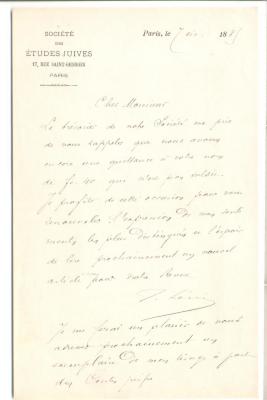 SOCIÉTÉ
DES
ÉTUDES JUIVES
17, RUE SAINT-GEORGES
PARIS
Paris, le 7 1885
Cher Monsieur
Le trésorier de notre Société me prie
de vous rappeler que nous avons
encore une quittance à votre nom
de fr. qui n'est pas soldée.
Je profite de cette occasion pour vous
renouveler l'expression de mes senti
ments les plus distingués et l'espoir
de lire prochainement un nouvel
article pour notre Revue.
Je me ferai un plaisir de vous
adresser prochainement un
exemplaire de mon tirage à part
des Contes juifs